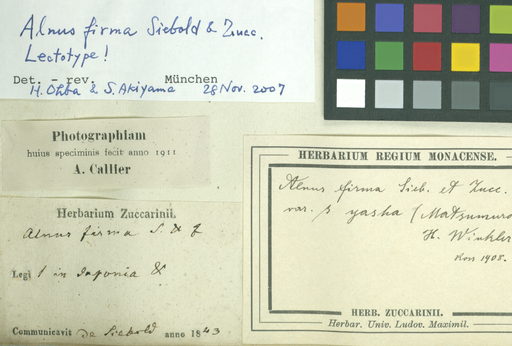 Alnus firma Siebold & Zucc.
Lectotype!
Det. - rev. München
H. Ohba & S. Akiyama 28 Nov. 2007
Photographiam
huius speciminis fecit anno 1911
A. Callier
Herbarium Zuccarinii.
Alnus firma S & Z
Legi in Japonia
Communicavit De Siebold anno 1843
HERBARIUM REGIUM MONACENSE.
Alnus firma Sieb. et Zucc.
var. yasha (Matsumura
H. Winkler
1908.
HERB. ZUCCARINII.
Herbar. Univ. Ludov. Maximil.